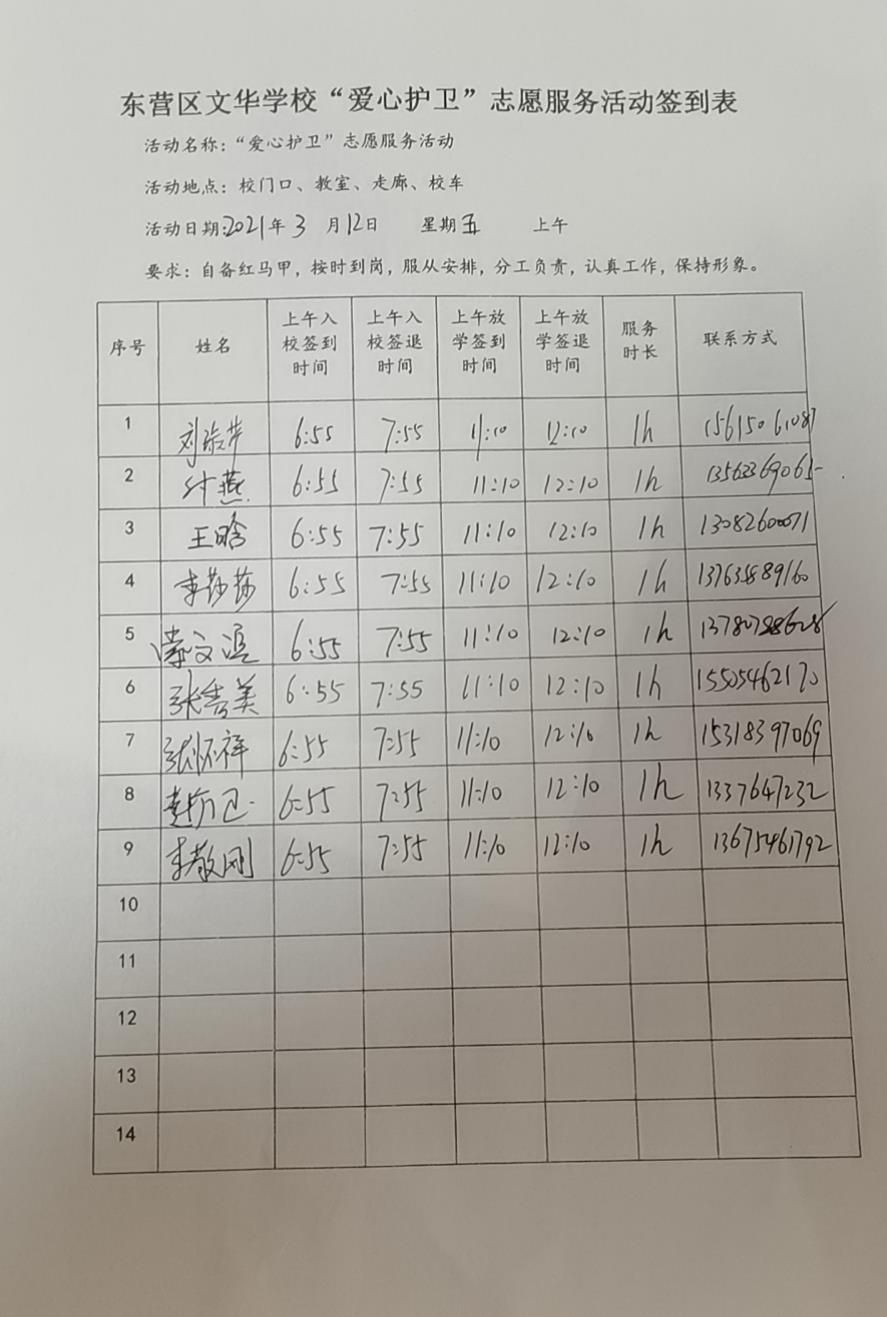 东营区文华学校“爱心护卫”志愿服务活动签到表
活动名称：“爱心护卫”志愿服务活动
活动地点：校门口、教室、走廊、校车
活动日期:2021年 3 月12日 星期五 上午
要求：自备红马甲，按时到岗，服从安排，分工负责，认真工作，保持形象。
序号 姓名 上午入校签到时间 上午入校签退时间 上午放学签到时间 上午放学签退时间 服务时长 联系方式
1 刘淑芹 6:55 7:55 11:10 12:10 1h 15615061087
2 付燕 6:55 7:55 11:10 12:10 1h
3 王晗 6:55 7:55 11:10 12:10 1h 13082600071
4 李莎莎 6:55 7:55 11:10 12:10 1h
5 6:55 7:55 11:10 12:10 1h
6 张秀美 6:55 7:55 11:10 12:10 1h 15505462170
7 张怀祥 6:55 7:55 11:10 12:10 1h 15318397069
8 6:55 7:55 11:10 12:10 1h 1337647232
9 李敬刚 6:55 7:55 11:10 12:10 1h 13675461792
10
11
12
13
14